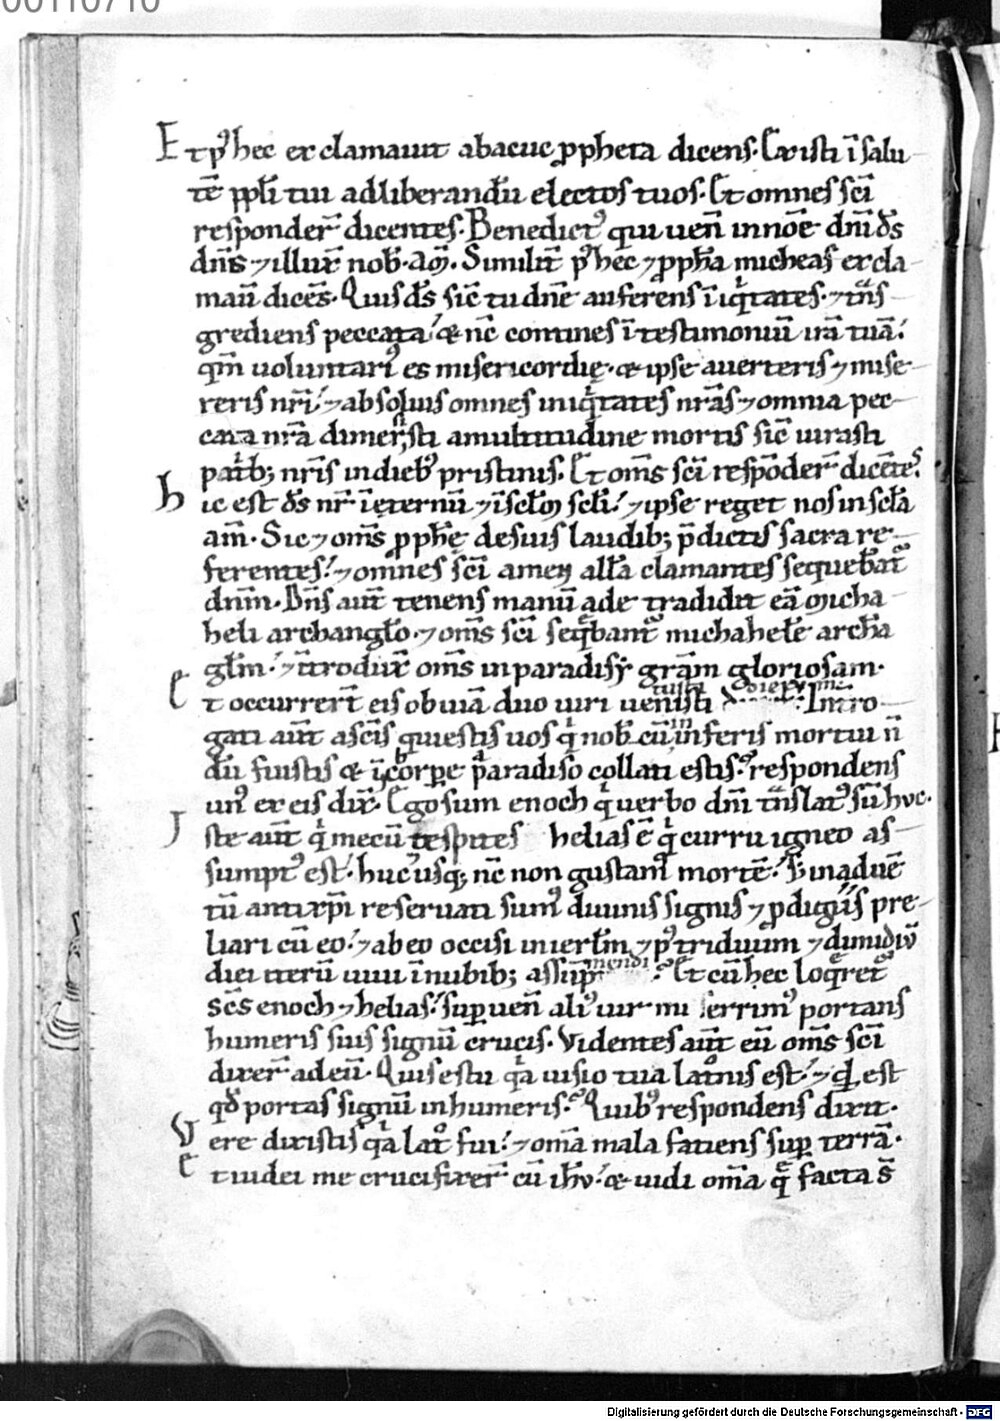 00110710
Et p᾽ hec exclamauit abacuc ꝓpheta dicens. Existi ī salu
tē ppłi tui ad liberandū electos tuos. Et omnes sc̄i
responder̄ dicentes. Benedict᾽ qui uen̄ in noīe dn̄i d̄s
dn̄s ⁊ illux̄ nob̄. am̄. Similit̄ p᾽ hec ⁊ ꝓph̄a micheas excla
mau̅ dicēs. Quis d̄s sic̄ tu dn̄e auferens īiqͥtates. ⁊ tͣns
grediens peccata? & nc̄ contines ī testimoniū irā tuā?
qm̄ uoluntari᾽ es misericordię. & ipse auerteris ⁊ mise
reris nr̄i? ⁊ absoluis omnes iniqͥtates nr̄as ⁊ omnia pec
cata nr̄a dimersisti a multitudine mortis sic̄ iurasti
patͥb; nr̄is in dieb᾽ pristinis. Et om̄s sc̄i respōder̄ dicētes.
hic est d̄s nr̄ ī ęternū ⁊ ī scłm scłi? ⁊ ipse reget nos in scła
am̄. Sic ⁊ om̄s ꝓph̄ę de suis laudib; p̄dictis sacra re
ferentes? ⁊ omnes sc̄i amen alła clamantes sequebāt᾽
dnm̄. Dn̄s aut̄ tenens manū adę tradidit eā micha
heli archangło. ⁊ om̄s sc̄i seq̄bant᾽ michahele arch̄a
głm. ⁊ ītrodux̄ om̄s in paradisỹ grām gloriosam.
Et occurrer̄t eis obuiā duo uiri uetusti Intro
gati aut̄ a sc̄is qui estis uos qͥ nob̄ cū in inferis mortui n̄
dū fuistis & ī corꝑe paradiso collati estis? respondens
un᾽ ex eis dix̄. Ego sum enoch qͥ uerbo dn̄i tͣnslat᾽ sū huc.
Iste aut̄ qͥ mecū tespites helias ē qͥ curru igneo as
sumpt᾽ est? huc usq; nc̄ non gustam᾽ mortē? S; in aduē
tū antixp̄i reseruati sum᾽ diuinis signis ⁊ ꝓdigiis pre
liari cū eo? ⁊ ab eo occisi in ierłm ⁊ p᾽ triduum ⁊ dimidiū
diei iterū uiui ī nubib; assum mendi. Et cū hec loqͥret᾽
sc̄s enoch ⁊ helias? supuen̄ ali᾽ uir mi serrim᾽ portans
humeris suis signū crucis. Videntes aut̄ eū om̄s sc̄i
dixer̄ ad eū. Quis es tu qͥa uisio tua latͦnis est? ⁊ qͥd est
qd̄ portas signū in humeris? Quib᾽ respondens dixit.
Vere dixistis qͥa latͦ fui? ⁊ om̄a mala fatiens sup terrā.
Et iudei me crucifixer̄ cū ih̄u? & uidi om̄a quę facta s̄
Digitalisierung gefördert durch die Deutsche Forschungsgemeinschaft - DFG